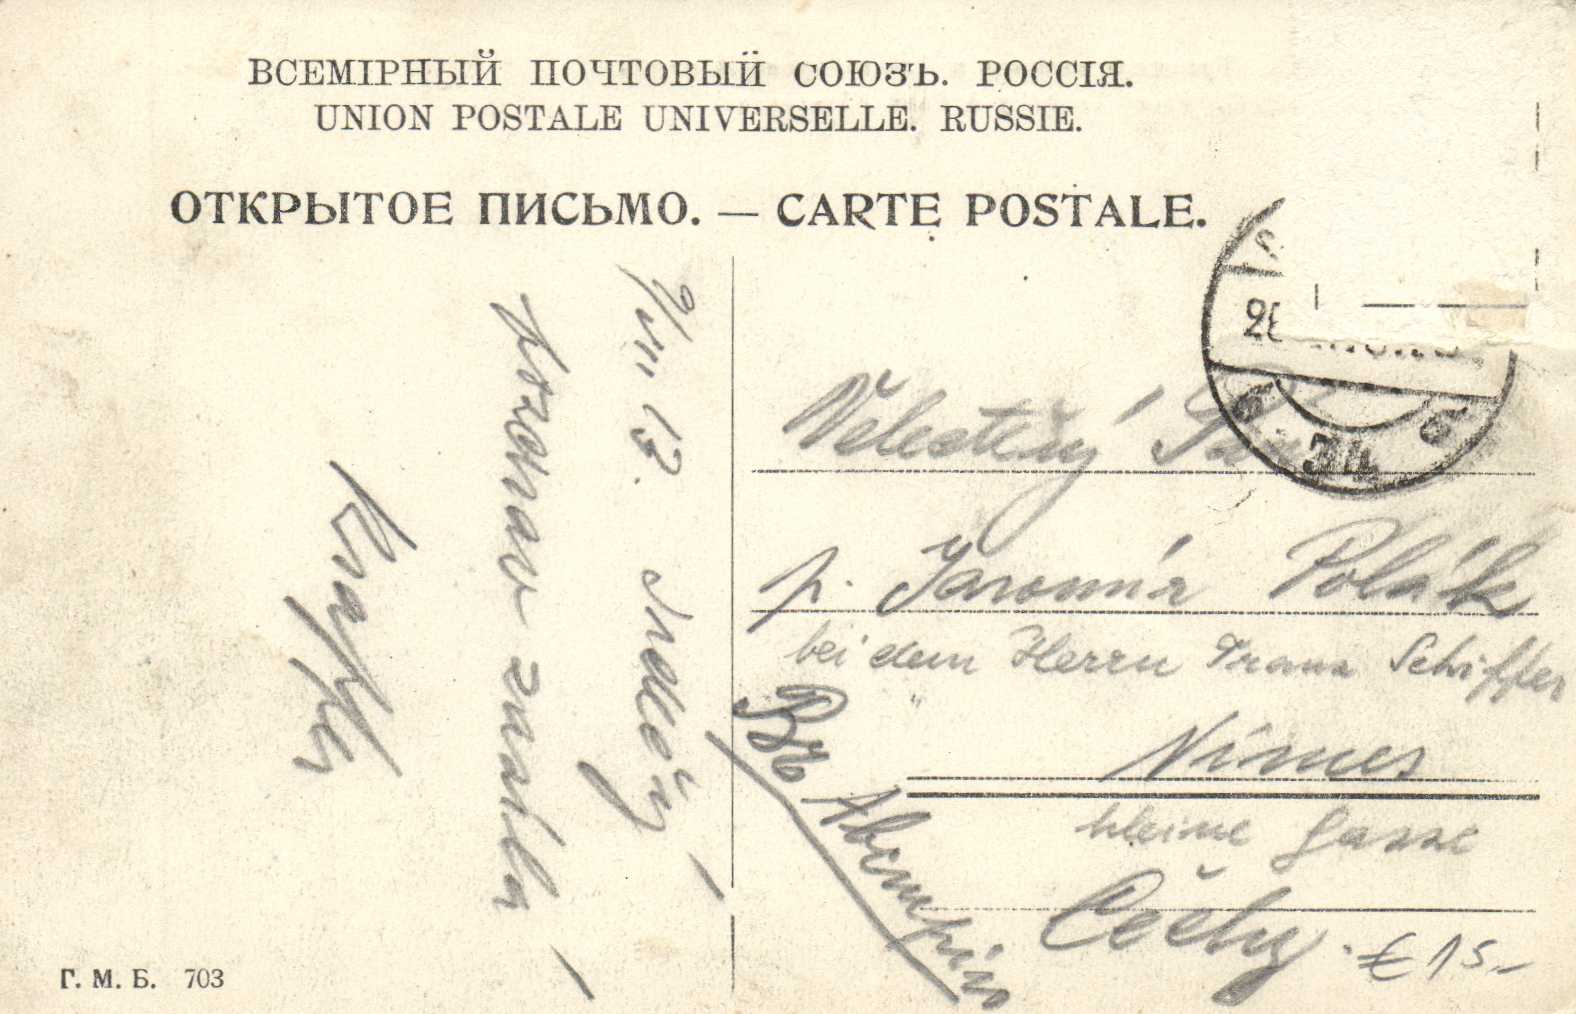 ВСЕМІРНЫЙ ПОЧТОВЫЙ СОЮЗЪ. РОССІЯ.
UNION POSTALE UNIVERSELLE. RUSSIE.
ОТКРЫТОЕ ПИСЬМО. — CARTE POSTALE.
9/VII 13. Srdečný
pozdrav zasílá
p. Jaromír Polák
bei dem Herrn Franz Schiffler
Nimes
kleine Gasse
Čechy
€ 15,-
Г. М. Б. 703